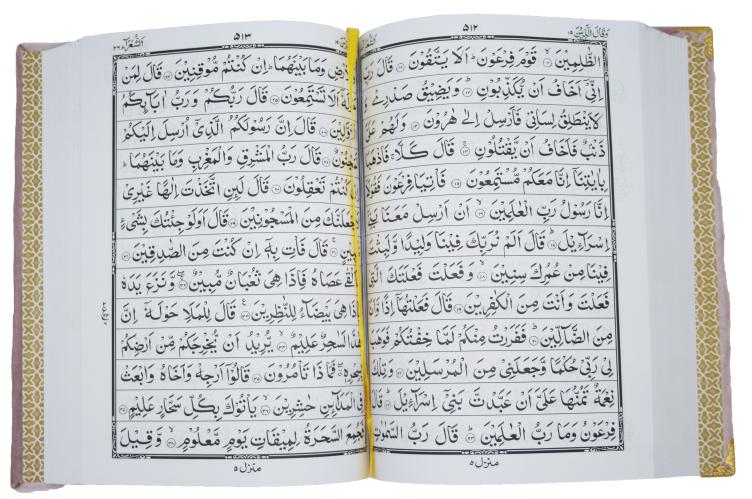 وَقَالَ الَّذِيْنَ ١٩ ٥١٢
الظّٰلِمِيْنَ ۙ۝ قَوْمَ فِرْعَوْنَ ؕ اَلَا يَتَّقُوْنَ ۝ قَالَ
اِنِّيْۤ اَخَافُ اَنْ يُّكَذِّبُوْنِ ؕ۝ وَيَضِيْقُ صَدْرِيْ
لَا يَنْطَلِقُ لِسَانِيْ فَاَرْسِلْ اِلٰى هٰرُوْنَ ۝ وَلَهُمْ
ذَنْۢبٌ فَاَخَافُ اَنْ يَّقْتُلُوْنِ ۚ۝ قَالَ كَلَّا ۚ
بِاٰيٰتِنَاۤ اِنَّا مَعَكُمْ مُّسْتَمِعُوْنَ ۝ فَاْتِيَا فِرْعَوْنَ
اِنَّا رَسُوْلُ رَبِّ الْعٰلَمِيْنَ ۙ۝ اَنْ اَرْسِلْ مَعَنَا
اِسْرَآءِيْلَ ؕ۝ قَالَ اَلَمْ نُرَبِّكَ فِيْنَا وَلِيْدًا
فِيْنَا مِنْ عُمُرِكَ سِنِيْنَ ۙ۝ وَفَعَلْتَ فَعْلَتَكَ
فَعَلْتَ وَاَنْتَ مِنَ الْكٰفِرِيْنَ ۝ قَالَ فَعَلْتُهَاۤ اِذًا
مِنَ الضَّآلِّيْنَ ؕ۝ فَفَرَرْتُ مِنْكُمْ لَمَّا خِفْتُكُمْ
لِيْ رَبِّيْ حُكْمًا وَّجَعَلَنِيْ مِنَ الْمُرْسَلِيْنَ ۝ وَتِلْكَ
نِعْمَةٌ تَمُنُّهَا عَلَيَّ اَنْ عَبَّدْتَّ بَنِيْۤ اِسْرَآءِيْلَ ؕ۝ قَالَ
فِرْعَوْنُ وَمَا رَبُّ الْعٰلَمِيْنَ ؕ۝ قَالَ رَبُّ السَّمٰوٰتِ
منزل ٥
٥١٣ الشُّعَرَآء ٢٦
وَمَا بَيْنَهُمَا ؕ اِنْ كُنْتُمْ مُّوْقِنِيْنَ ۝ قَالَ لِمَنْ
اَلَا تَسْتَمِعُوْنَ ۝ قَالَ رَبُّكُمْ وَرَبُّ اٰبَآئِكُمُ
قَالَ اِنَّ رَسُوْلَكُمُ الَّذِيْۤ اُرْسِلَ اِلَيْكُمْ
قَالَ رَبُّ الْمَشْرِقِ وَالْمَغْرِبِ وَمَا بَيْنَهُمَا ؕ
كُنْتُمْ تَعْقِلُوْنَ ۝ قَالَ لَئِنِ اتَّخَذْتَ اِلٰهًا غَيْرِيْ
مِنَ الْمَسْجُوْنِيْنَ ۝ قَالَ اَوَلَوْ جِئْتُكَ بِشَيْءٍ
قَالَ فَاْتِ بِهٖۤ اِنْ كُنْتَ مِنَ الصّٰدِقِيْنَ ۝
عَصَاهُ فَاِذَا هِيَ ثُعْبَانٌ مُّبِيْنٌ ۚۖ۝ وَّنَزَعَ يَدَهٗ
هِيَ بَيْضَآءُ لِلنّٰظِرِيْنَ ۝ قَالَ لِلْمَلَاِ حَوْلَهٗۤ اِنَّ
هٰذَا لَسٰحِرٌ عَلِيْمٌ ۙ۝ يُّرِيْدُ اَنْ يُّخْرِجَكُمْ مِّنْ اَرْضِكُمْ
بِسِحْرِهٖ ۖۗ فَمَاذَا تَاْمُرُوْنَ ۝ قَالُوْۤا اَرْجِهْ وَاَخَاهُ وَابْعَثْ
فِي الْمَدَآئِنِ حٰشِرِيْنَ ۙ۝ يَاْتُوْكَ بِكُلِّ سَحَّارٍ عَلِيْمٍ ۝
فَجُمِعَ السَّحَرَةُ لِمِيْقَاتِ يَوْمٍ مَّعْلُوْمٍ ۙ۝ وَّقِيْلَ
منزل ٥